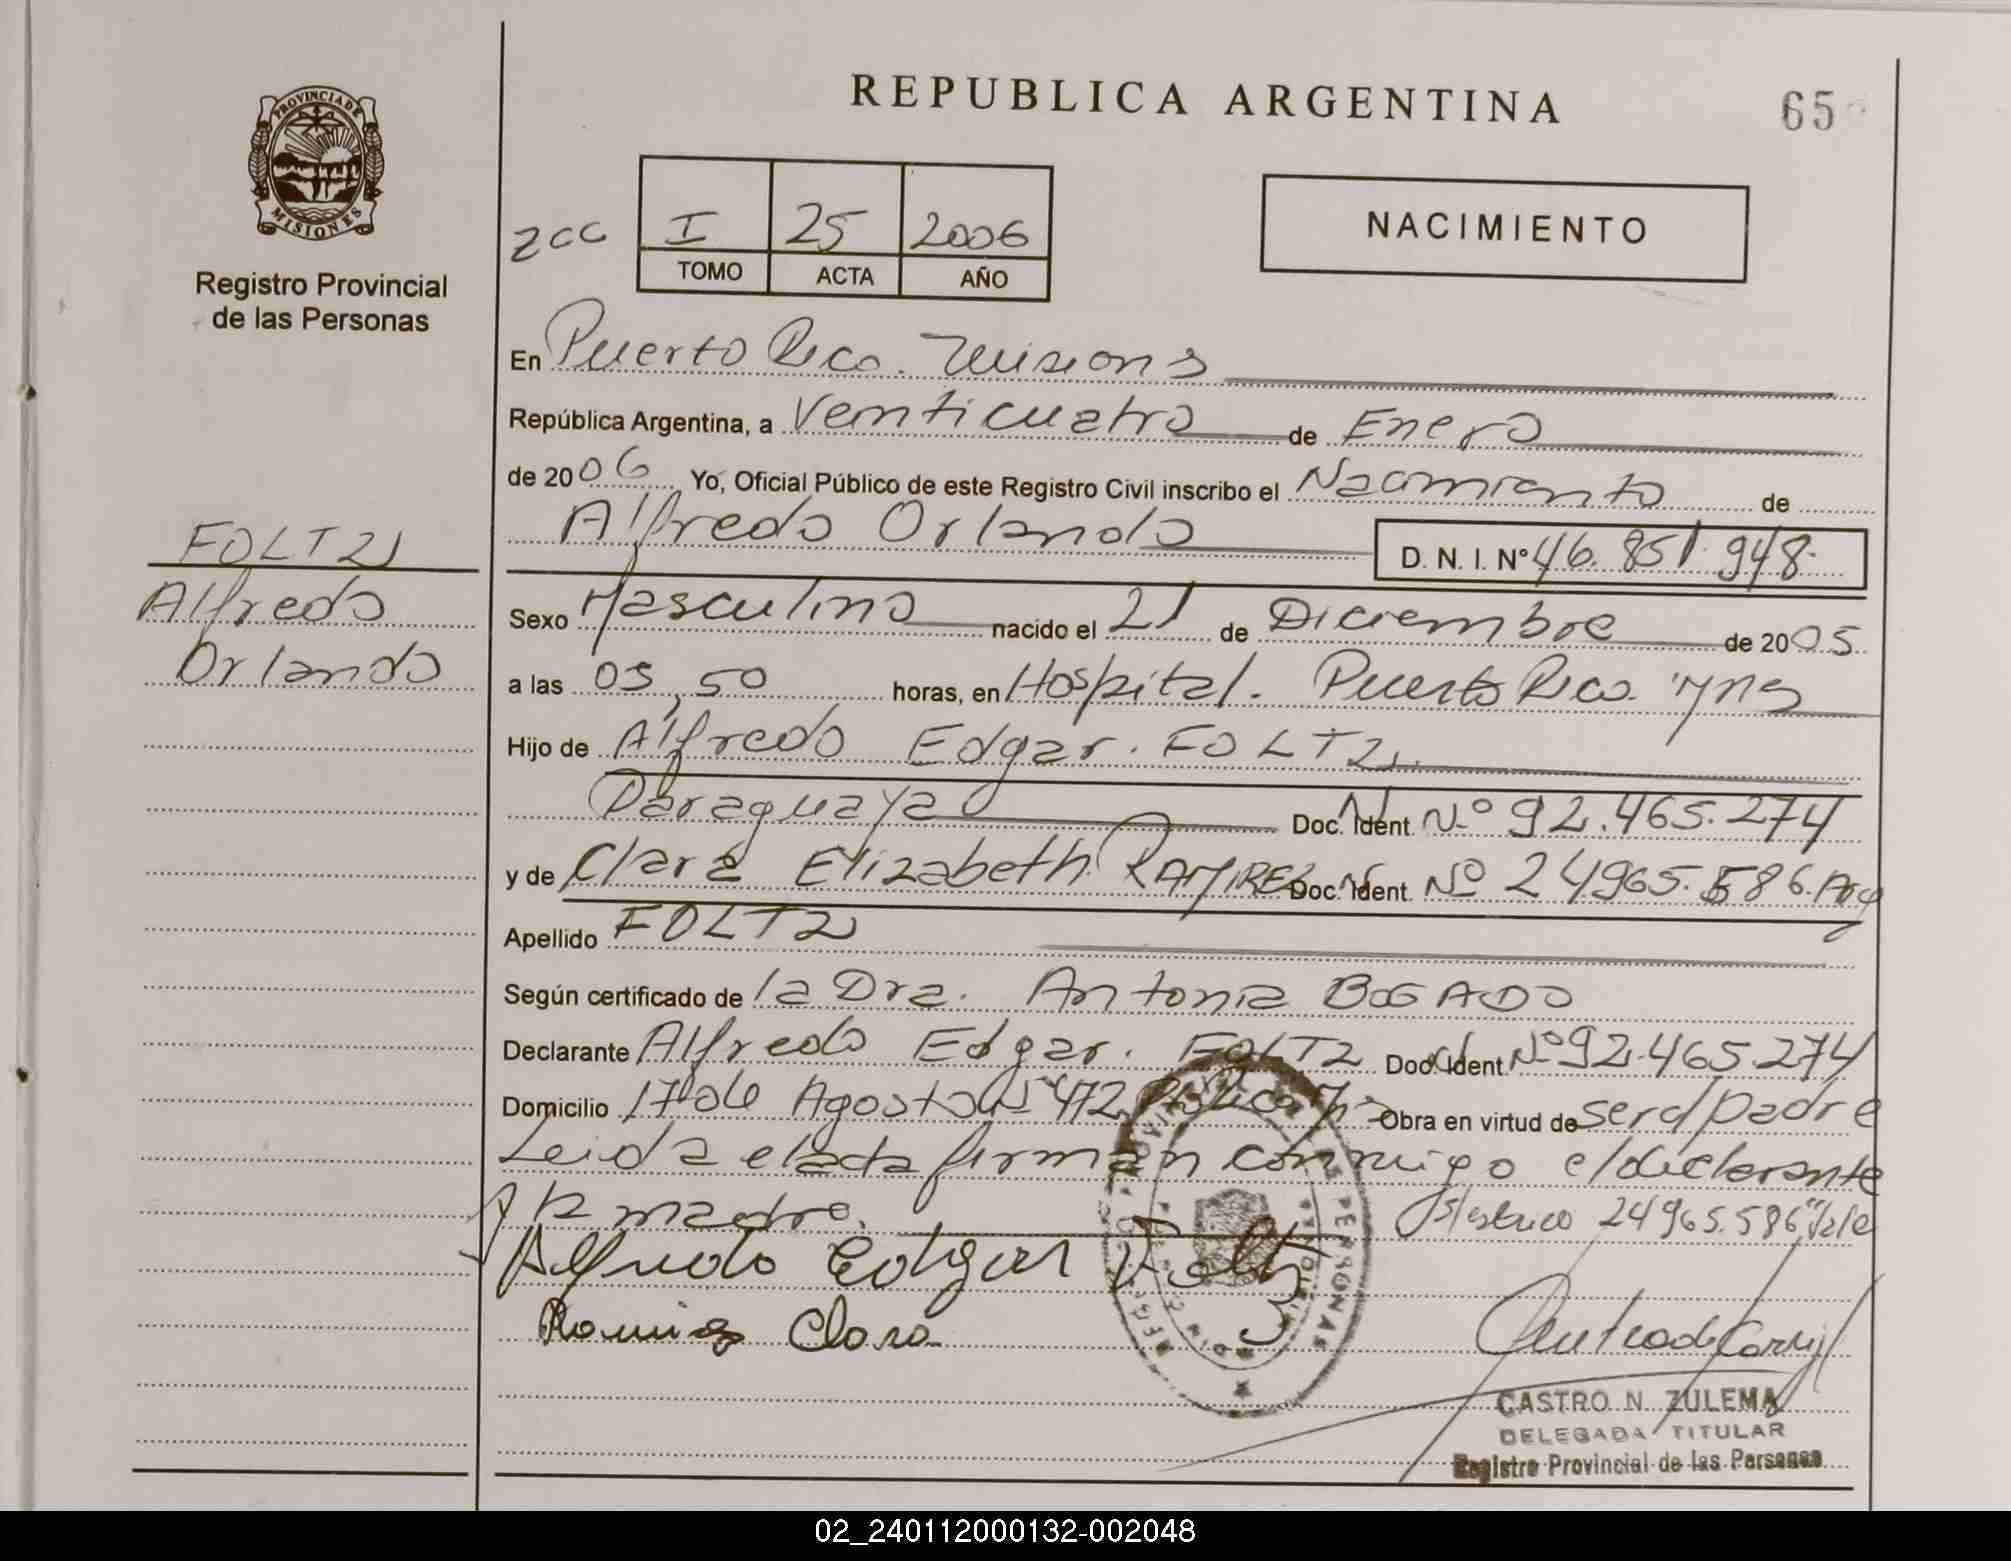 REPUBLICA ARGENTINA
65
PROVINCIA DE
MISIONES
Registro Provincial
de las Personas
NACIMIENTO
I 25 2006
TOMO ACTA AÑO
En Puerto Rico. Misions
República Argentina, a Venticuatro de Enero
de 2006 Yo, Oficial Público de este Registro Civil inscribo el Nacimiento de
Alfredo Orlando D. N. I. Nº 46.851.948.
FOLTZ
Alfredo
Orlando
Sexo Masculino nacido el 21 de Diciembre de 2005
a las 03,50 horas, en Hospital. Puerto Rico. Mns
Hijo de Alfredo Edgar. FOLTZ
Paraguaya Doc. Ident. Nº 92.465.274
y de Clara Elizabeth RAMIREZ Doc. Ident. Nº 24965.586. Arg
Apellido FOLTZ
Según certificado de la Dra. Antonia BOGADO
Declarante Alfredo Edgar. FOLTZ Doc. Ident. Nº 92.465.274
Domicilio 17 de Agosto 472 Obra en virtud de ser el padre
Leida el acta firman conmigo el declarante
y la madre. 24965.586 "Vale
Alfredo Edgar Foltz
Ramirez Clara
CASTRO N. ZULEMA
DELEGADA TITULAR
Registro Provincial de las Personas
02_240112000132-002048